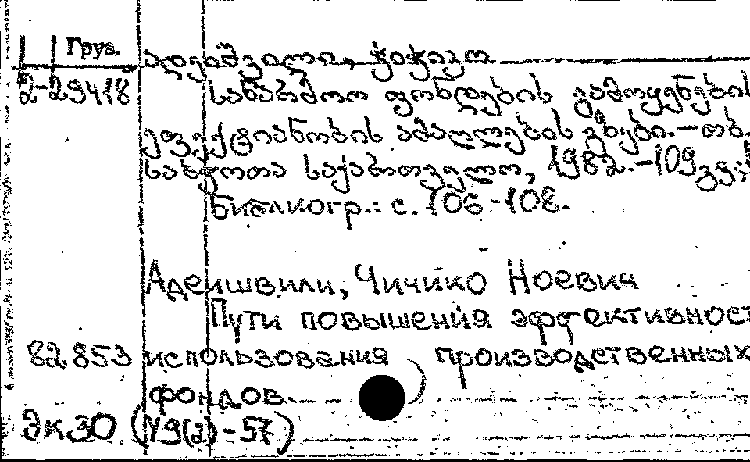 Груз.
ადეიშვილი, ჭიჭიკო
2-29418
საწარმოო ფონდების გამოყენების
ეფექტიანობის ამაღლების გზები.—თბ.
საბჭოთა საქართველო, 1982.-109გვ;
Библиогр.: с. 106-108.
Адеишвили, Чичико Ноевич
Пути повышения эффективност
82.853 использования производственных
фондов.
ЭКЗО (У9(2)-57)